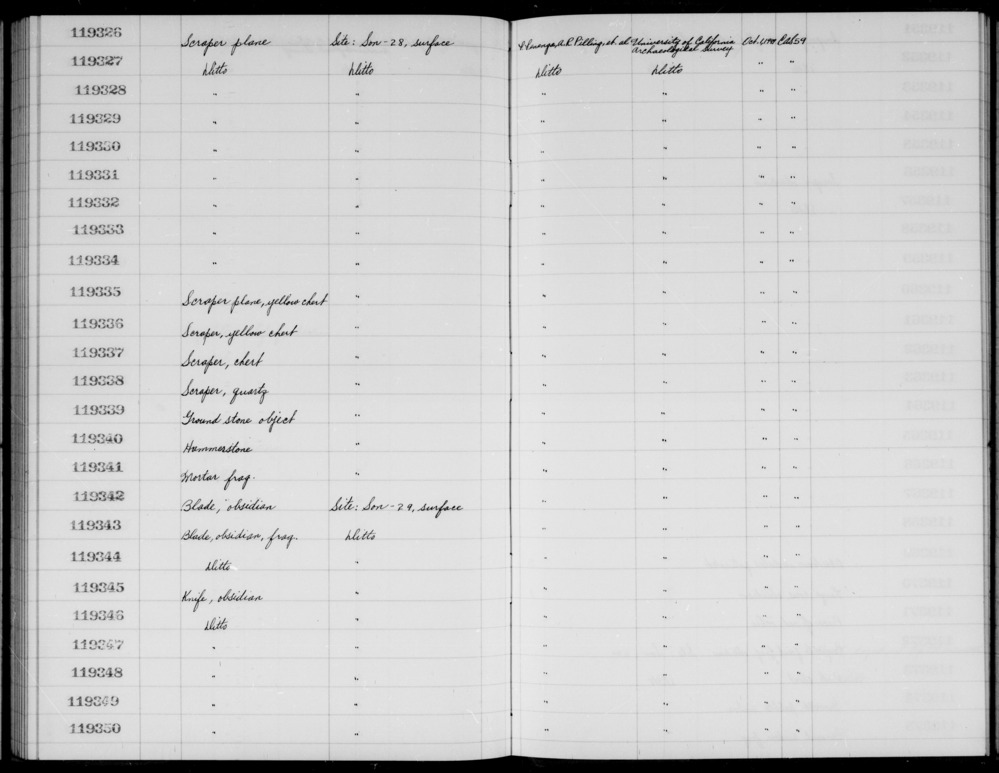 119326 Scraper plane Site: Son-28, surface A.R. Pilling, et al University of California Archaeological Survey Oct. 1949
119327 Ditto Ditto Ditto Ditto " "
119328 " " " " " "
119329 " " " " " "
119330 " " " " " "
119331 " " " " " "
119332 " " " " " "
119333 " " " " " "
119334 " " " " " "
119335 Scraper plane, yellow chert " " " " "
119336 Scraper, yellow chert " " " " "
119337 Scraper, chert " " " " "
119338 Scraper, quartz " " " " "
119339 Ground stone object " " " " "
119340 Hammerstone " " " " "
119341 Mortar frag. " " " " "
119342 Blade, obsidian Site: Son-29, surface " " " "
119343 Blade, obsidian, frag. Ditto " " " "
119344 Ditto " " " " "
119345 Knife, obsidian " " " " "
119346 Ditto " " " " "
119347 " " " " " "
119348 " " " " " "
119349 " " " " " "
119350 " " " " " "